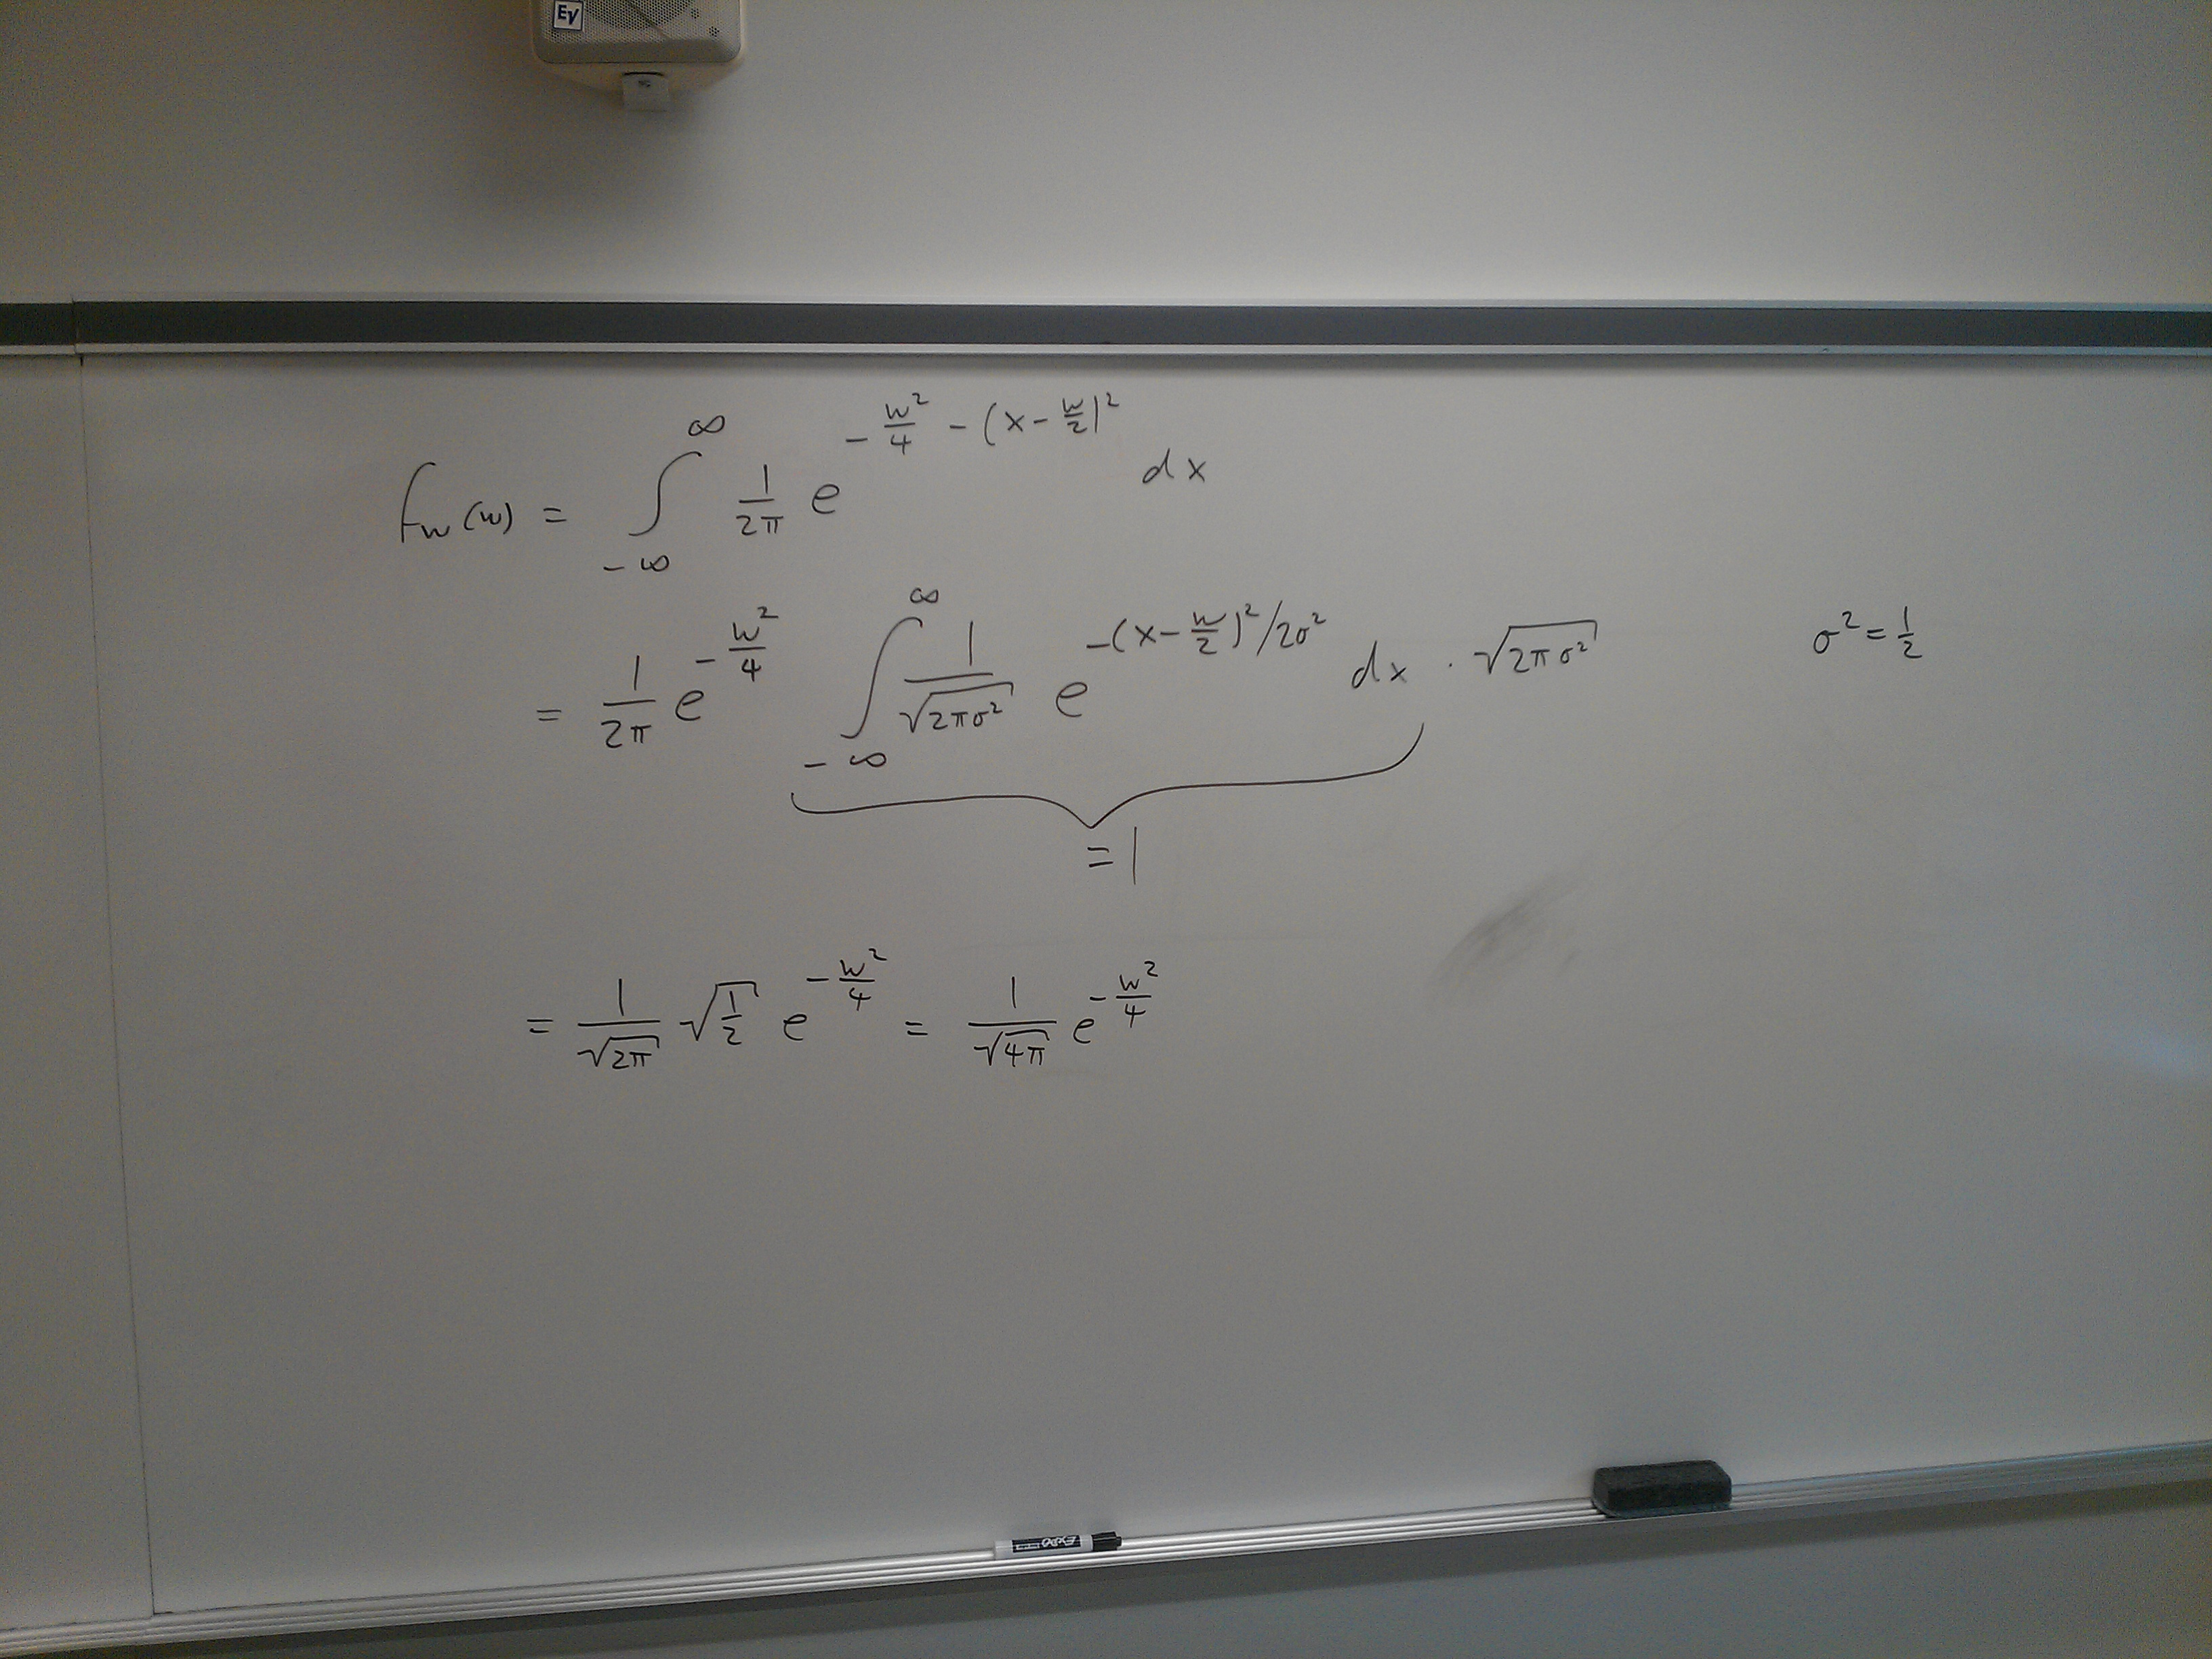 EV
f_W(w) = ∫_{-∞}^{∞} \frac{1}{2π} e^{-\frac{w^2}{4} - (x - \frac{w}{2})^2} dx
= \frac{1}{2π} e^{-\frac{w^2}{4}} ∫_{-∞}^{∞} \frac{1}{\sqrt{2πσ^2}} e^{-(x - \frac{w}{2})^2/2σ^2} dx · \sqrt{2πσ^2} σ^2 = \frac{1}{2}
= 1
= \frac{1}{\sqrt{2π}} \sqrt{\frac{1}{2}} e^{-\frac{w^2}{4}} = \frac{1}{\sqrt{4π}} e^{-\frac{w^2}{4}}
EXPO